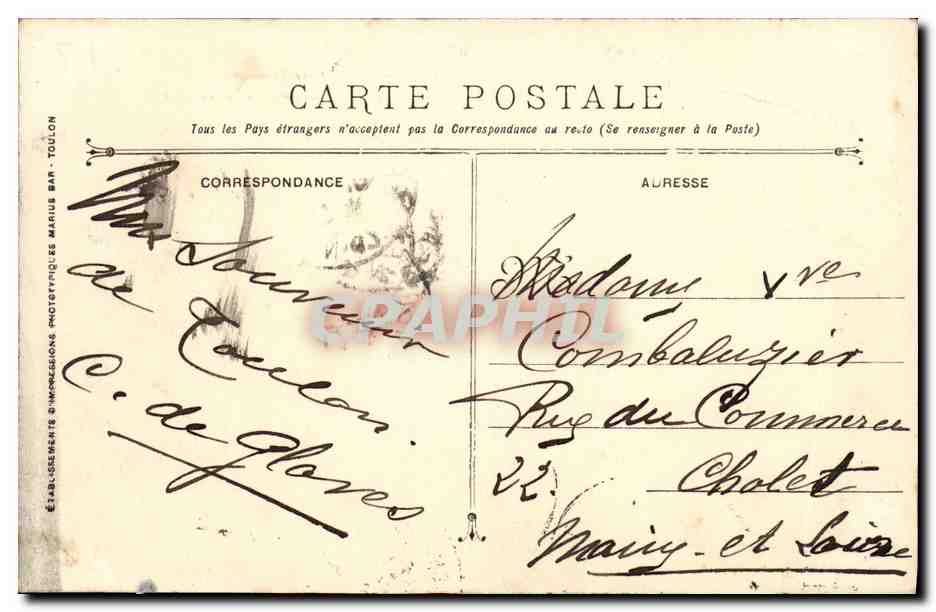 CARTE POSTALE
Tous les Pays étrangers n'acceptent pas la Correspondance au recto (Se renseigner à la Poste)
CORRESPONDANCE
Un Souvenir
de Toulon
C. de Glaves
ADRESSE
Madame Vve
Combaluzier
Rue du Commerce
22. Cholet
Maine-et Loire
ÉTABLISSEMENTS D'IMPRESSIONS PHOTOTYPIQUES MARIUS BAR - TOULON
CPAPHIL